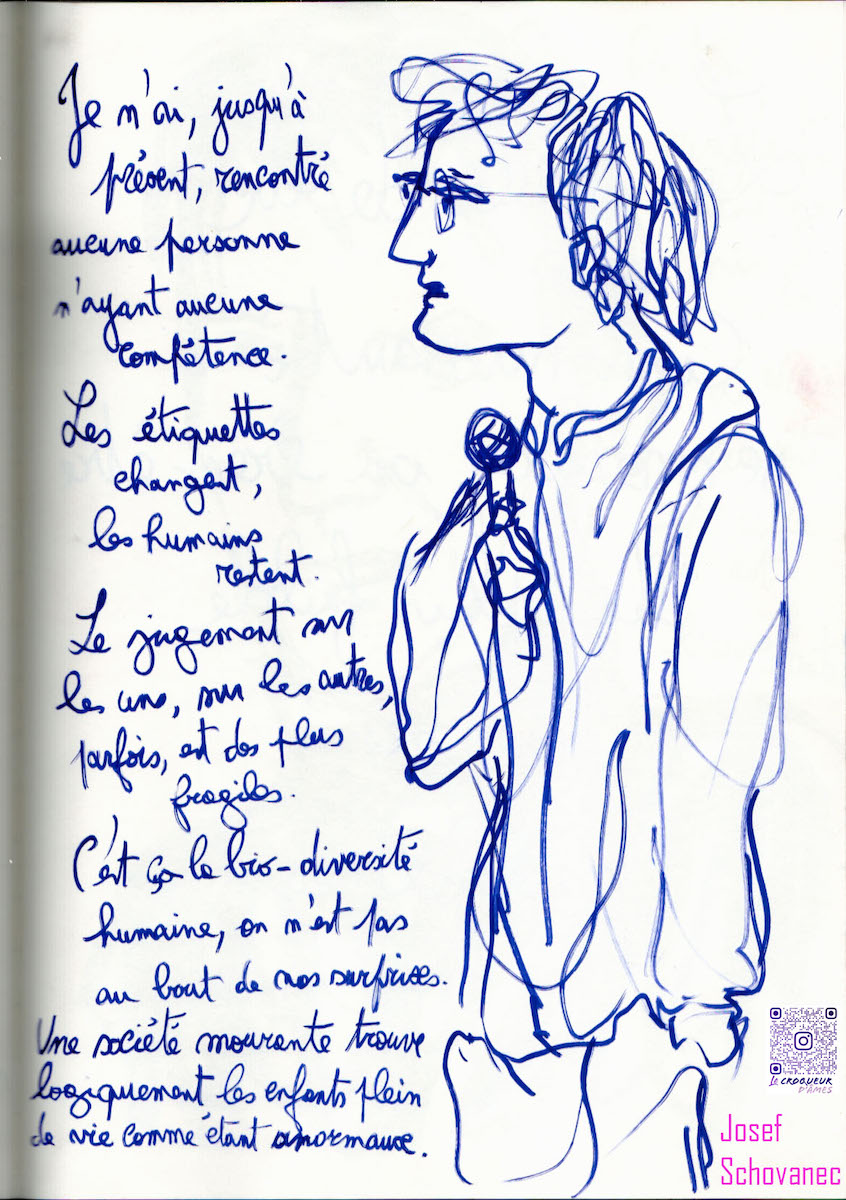 Je n'ai, jusqu'à
présent, rencontré
aucune personne
n'ayant aucune
compétence.
Les étiquettes
changent,
les humains
restent.
Le jugement sur
les uns, sur les autres,
parfois, est des plus
fragiles.
C'est ça la bio-diversité
humaine, on n'est pas
au bout de nos surprises.
Une société mourante trouve
logiquement les enfants plein
de vie comme étant anormaux.
Le CROQUEUR
D'ÂMES
Josef
Schovanec